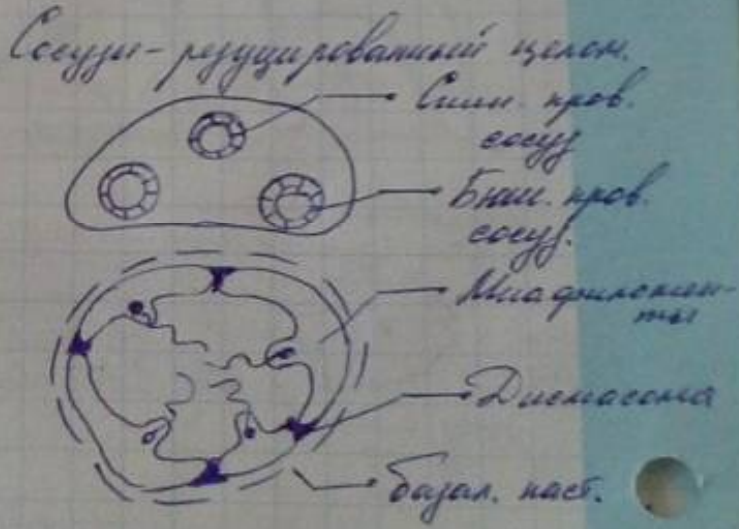 Сосуды - редуцированный целом.
Спин. кров.
сосуд
Бкш. кров.
сосуд.
Миофиламен-
ты
Дисмасома
базал. пласт.